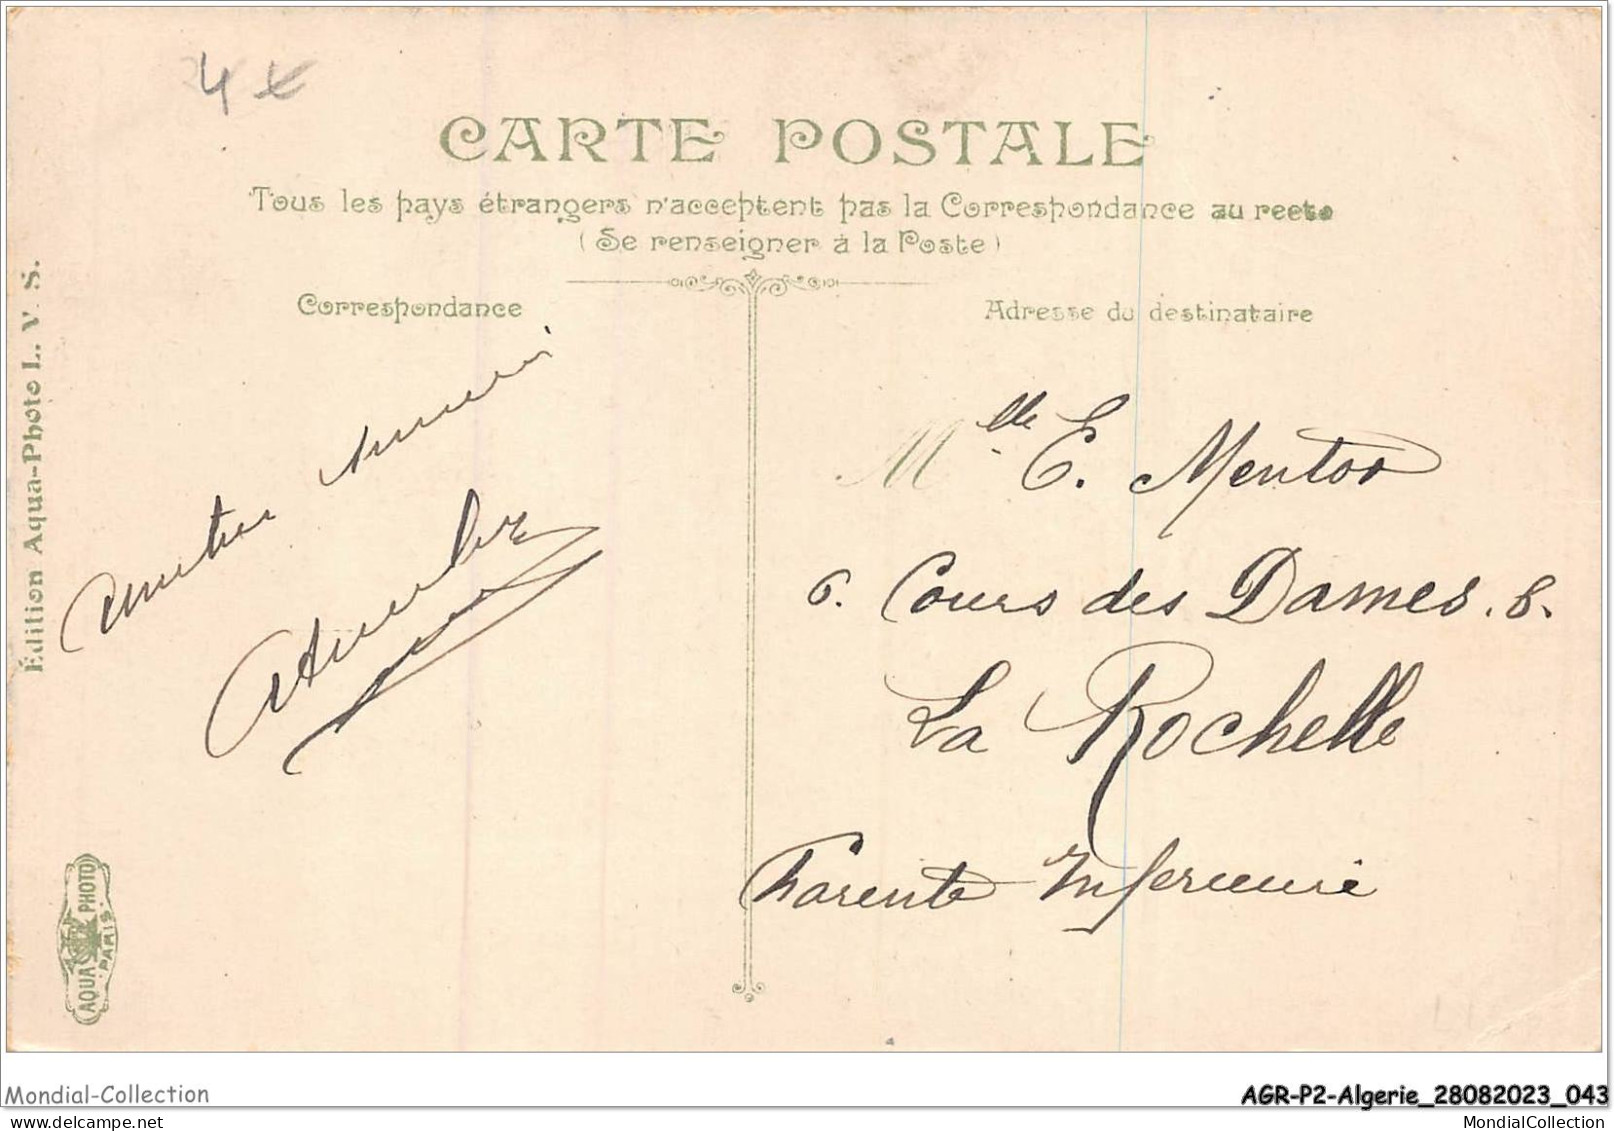 4 €
CARTE POSTALE
Tous les pays étrangers n'acceptent pas la Correspondance au recto
(Se renseigner à la Poste)
Correspondance
Adresse du destinataire
Mlle E. Mentor
6. Cours des Dames. 6.
La Rochelle
Charente Inferieure
Édition Aqua-Photo L. V. S.
AQUA PHOTO
PARIS
Mondial-Collection
AGR-P2-Algerie_28082023_043
MondialCollection